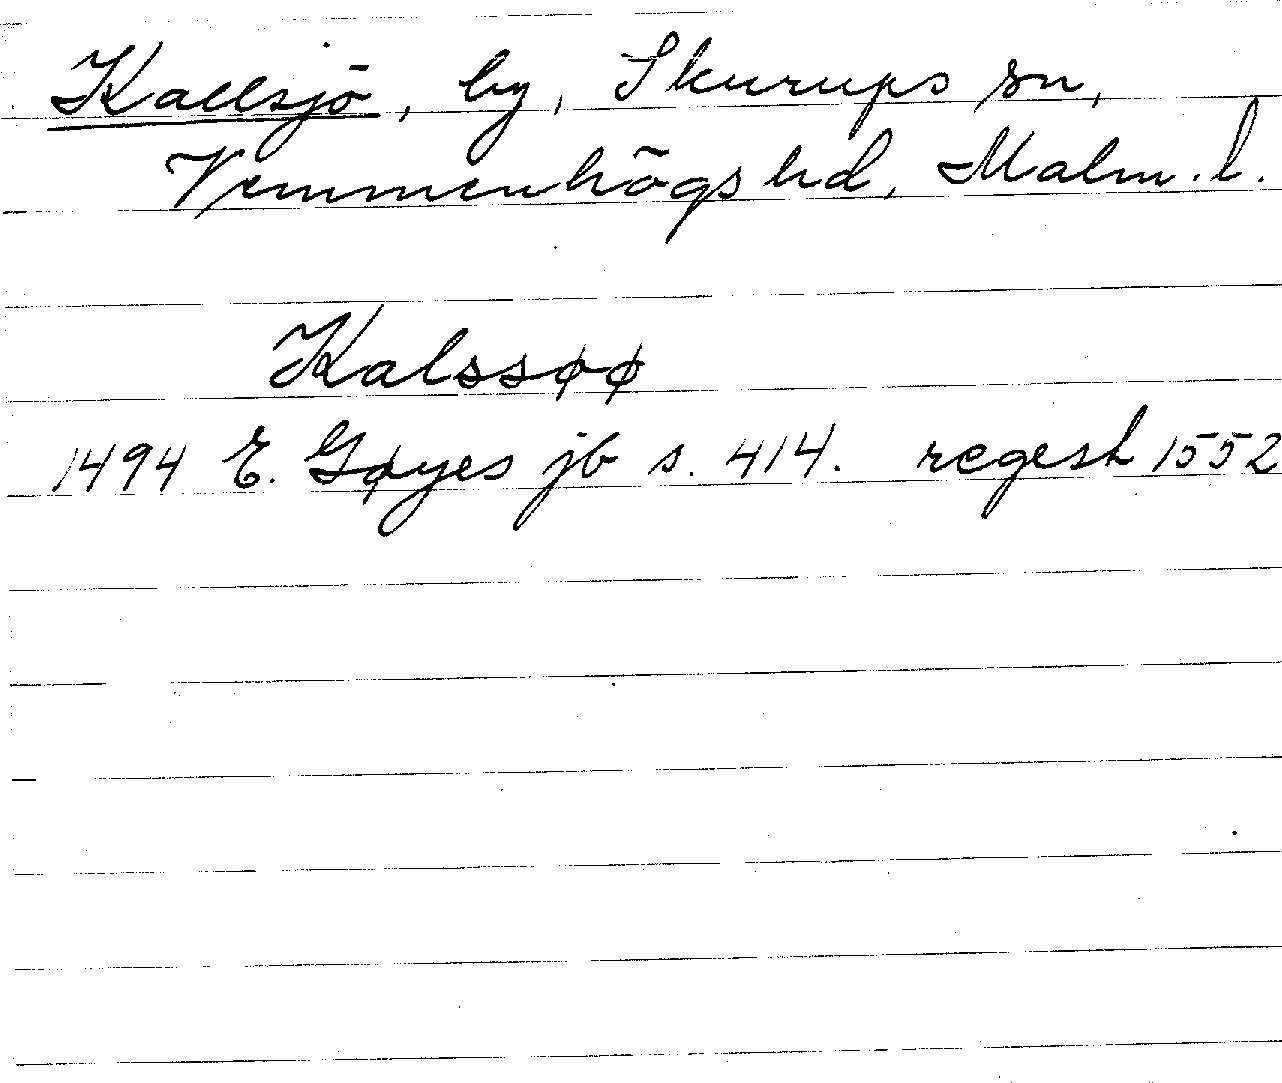 Kallsjö, by, Skurups sn,
Vemmenhögs hd, Malm. l.
Kalssøø
1494 E. Gøyes jb s. 414. regest 1552